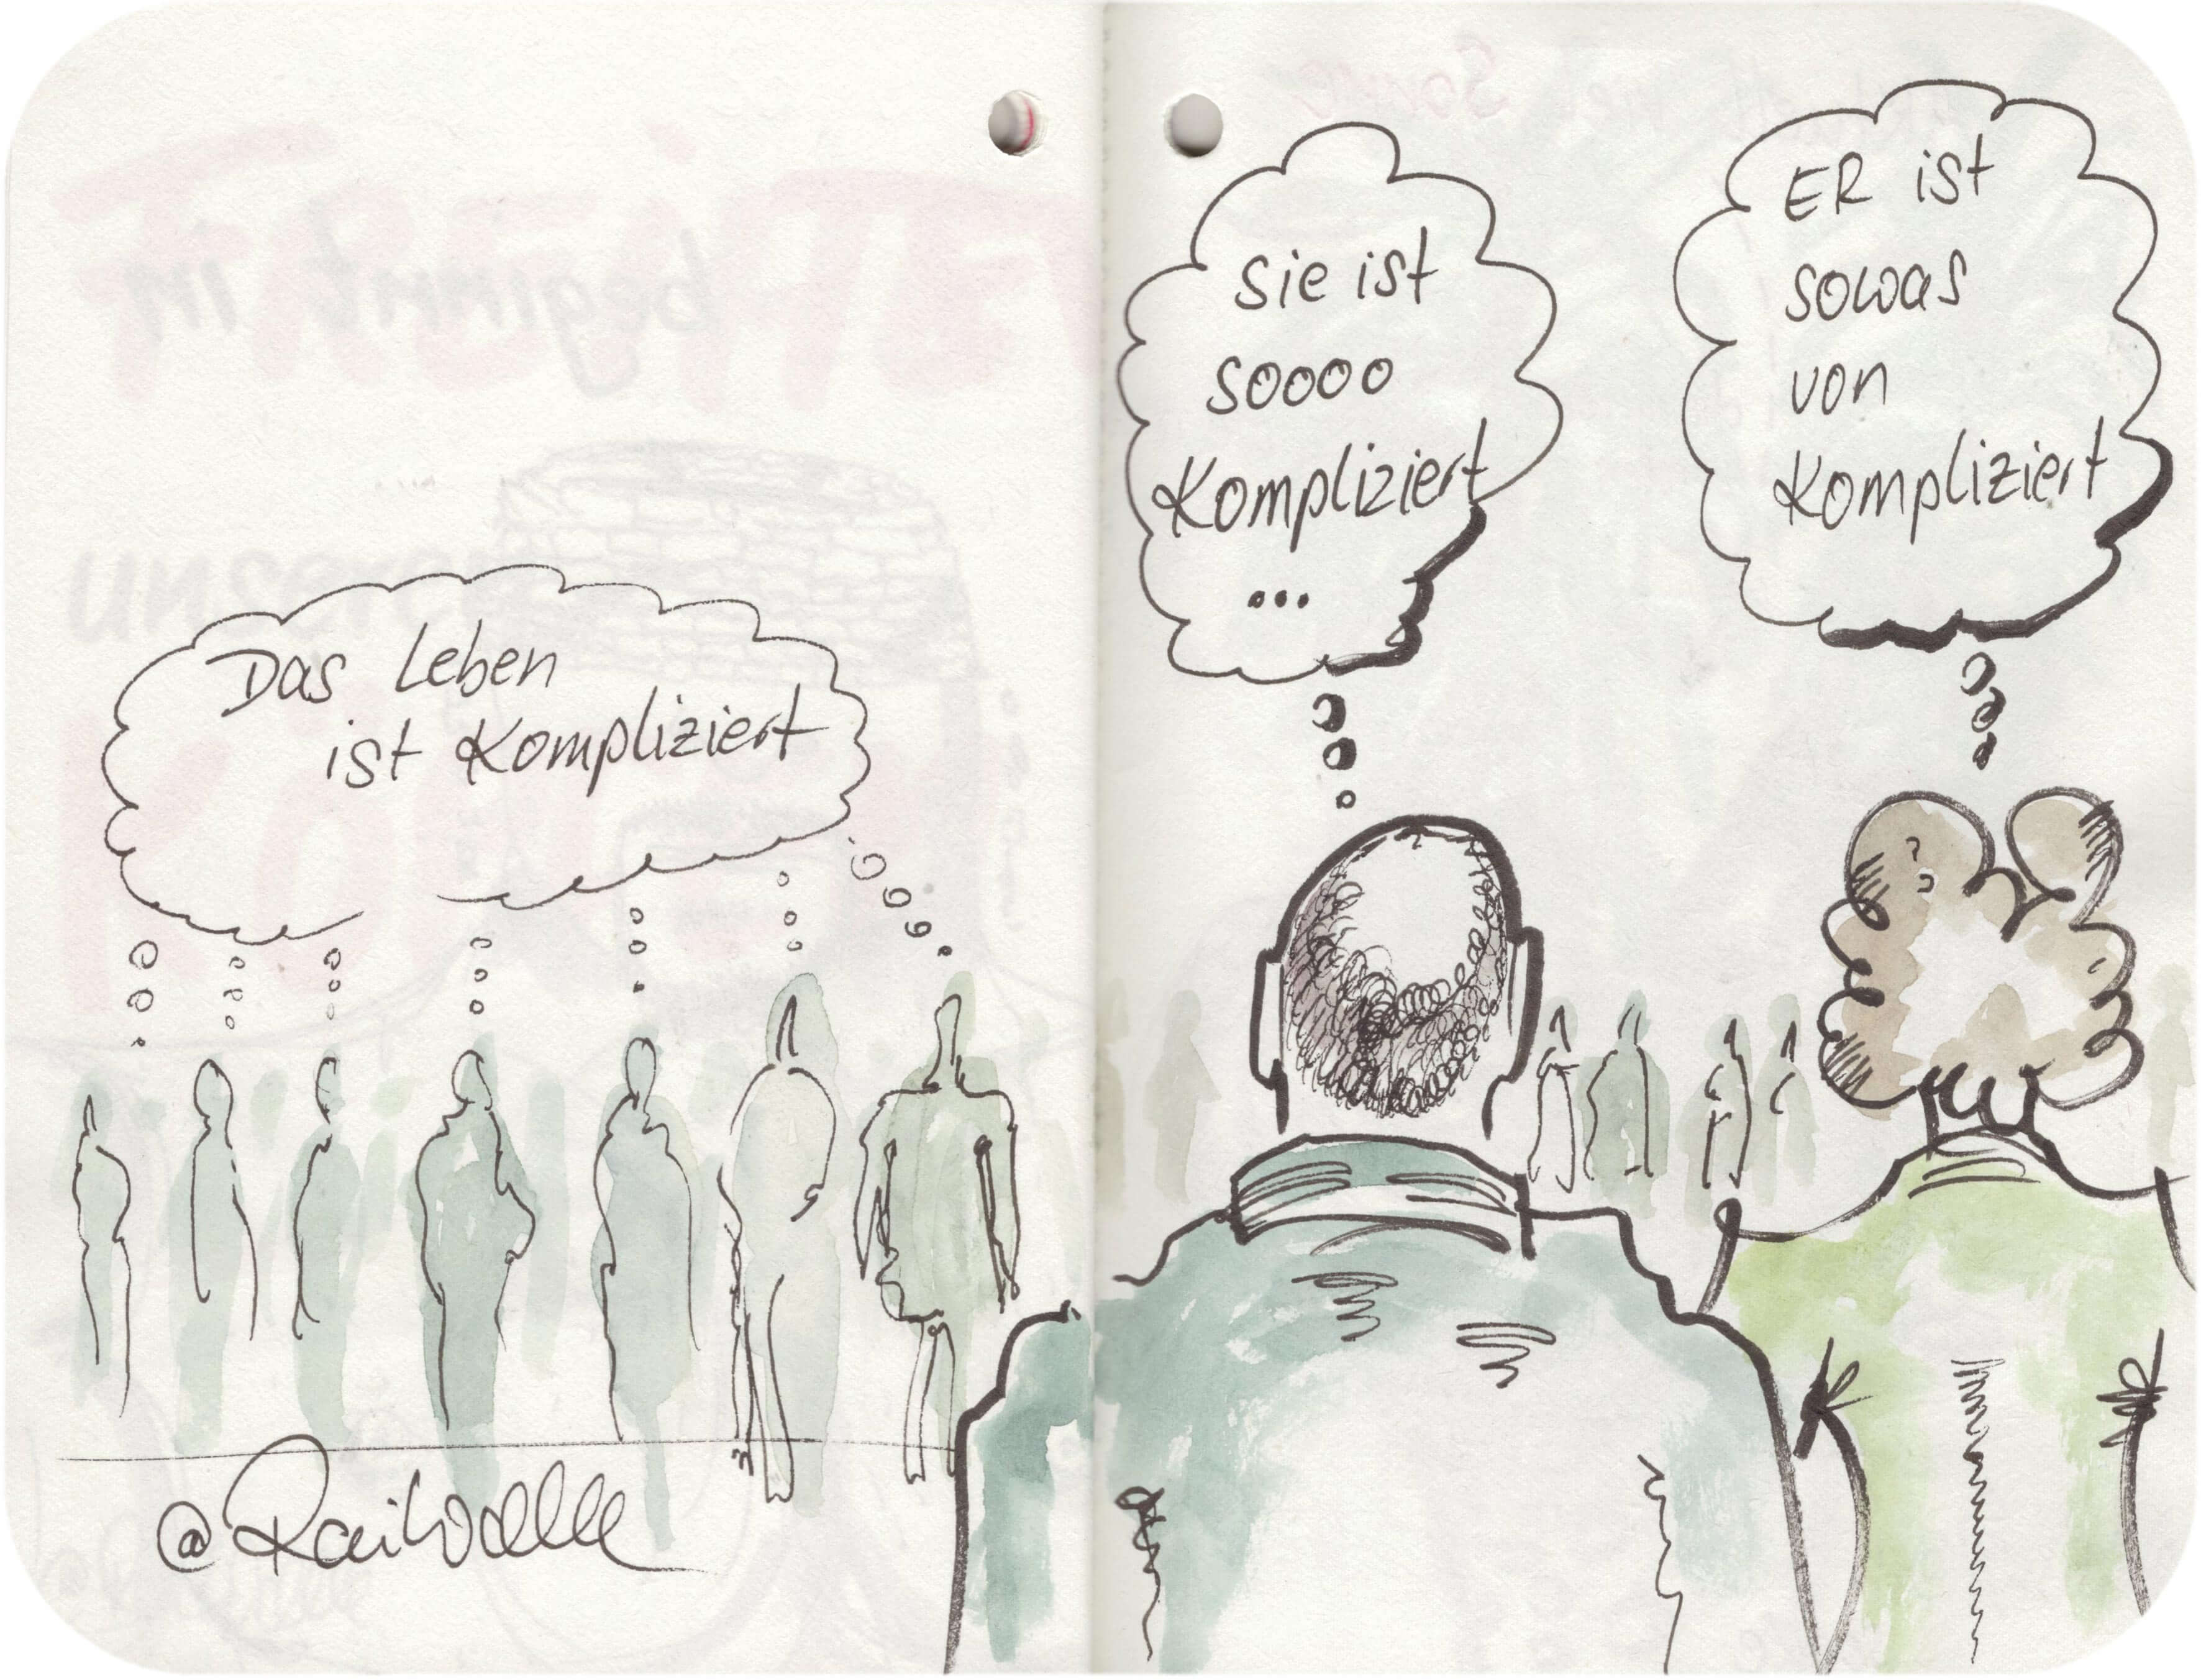 Das Leben
ist Kompliziert
Sie ist
soooo
Kompliziert
...
ER ist
sowas
von
Kompliziert
@RaiWalle
beginnt im